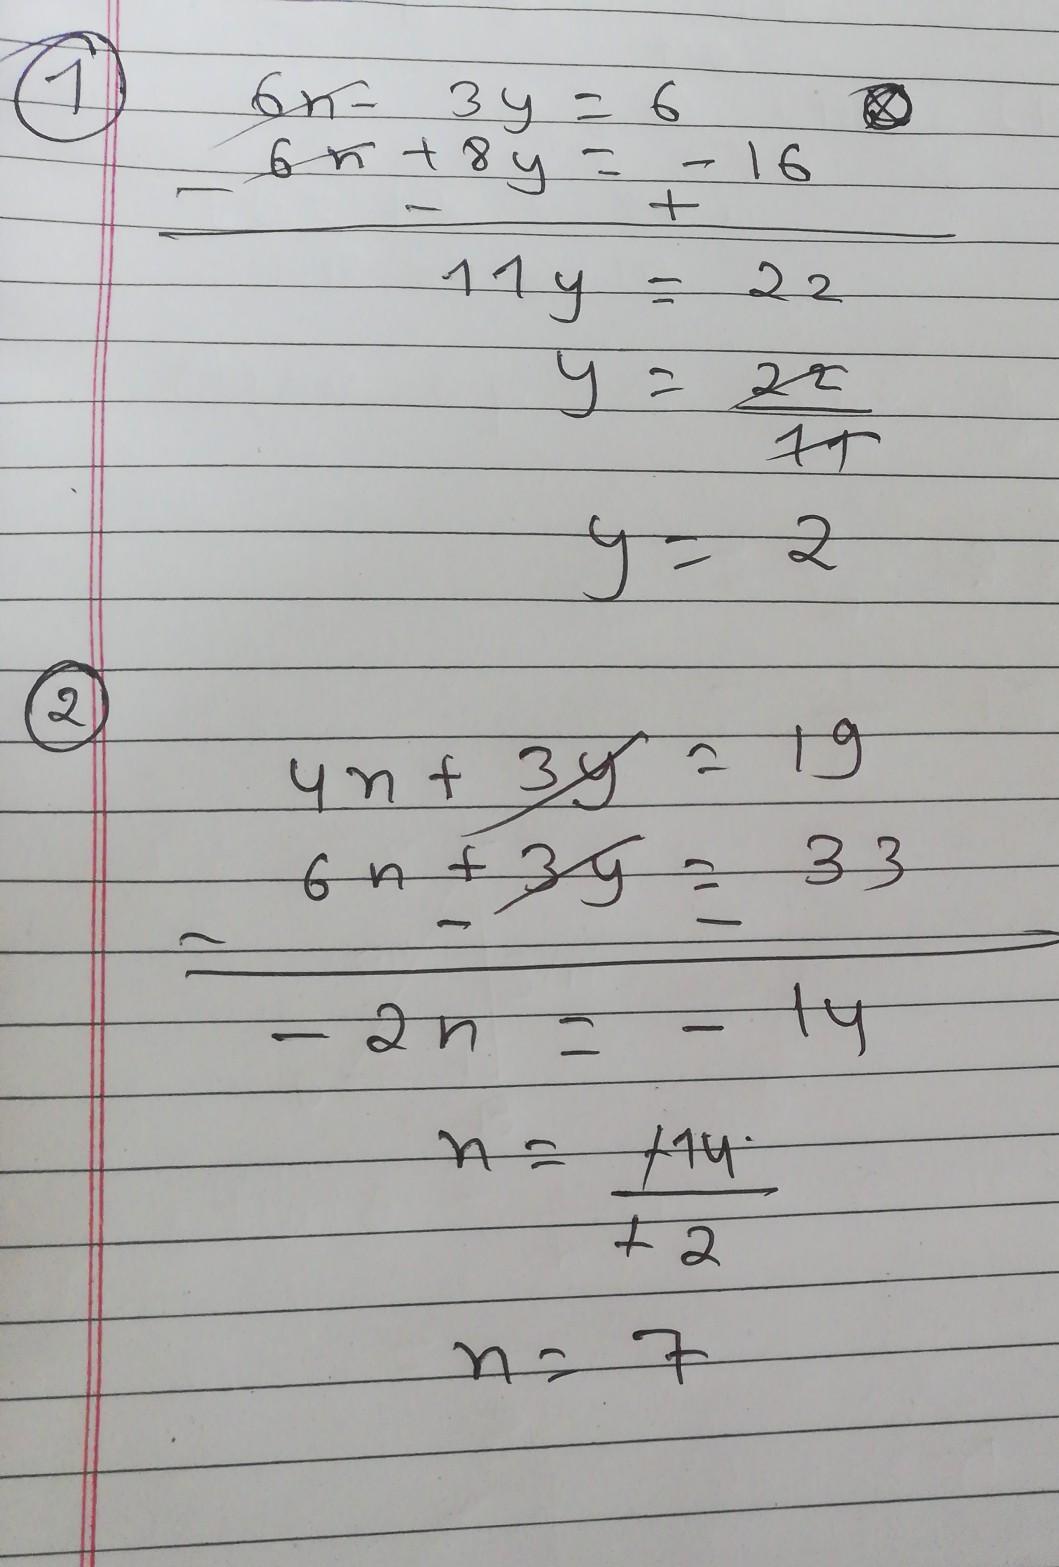 1
6n - 3y = 6
6n + 8y = - 16
- - +
11y = 22
y = 22
11
y = 2
2
4n + 3y = 19
6n + 3y = 33
- - -
- 2n = - 14
n = +14
+ 2
n = 7